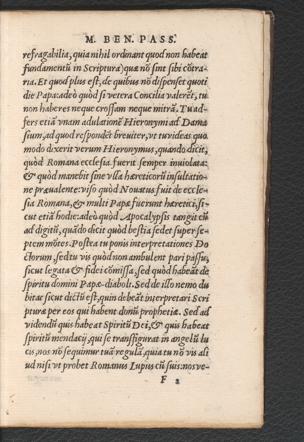 M. BEN. PASS.
refragabilia, quia nihil ordinant quod non habeat
fundamentū in Scriptura) quæ nō sint sibi cōtra-
ria. Et quod plus est, de quibus nō dispenset quoti
die Papa: adeò quòd si vetera Concilia valerēt, tu
non haberes neque crossam neque mitrā. Tu ad-
fers etiā vnam adulationē Hieronymi ad Dama
sium, ad quod respondēt breuiter, vt tu videas quo
modo dixerit verum Hieronymus, quando dicit,
quòd Romana ecclesia fuerit semper inuiolata:
& quòd manebit sine vlla hæreticorū insultatio-
ne præualente: viso quòd Nouatus fuit de eccle-
sia Romana, & multi Papæ fuerunt hæretici, si-
cut etiā hodie: adeò quòd Apocalypsis tangit eū
ad digitū, quādo dicit quòd bestia sedet super se-
ptem mōtes. Postea tu ponis interpretationes Do
ctorum, sed tu vis quòd non ambulent pari passu,
sicut legata & fidei cōmissa, sed quòd habeāt de
spiritu domini Papæ-diaboli. Sed de illo nemo du
bitat sicut dictū est, quin debeāt interpretari Scri
ptura per eos qui habent donū prophetiæ. Sed ad
videndū quis habeat Spiritū Dei, & quis habeat
spiritū mendacij, qui se transfigurat in angelū lu
cis, nos nō sequimur tuā regulā, quia tu nō vis ali
ud nisi vt probet Romanus Lupus cū suis: nos ve-
F 2